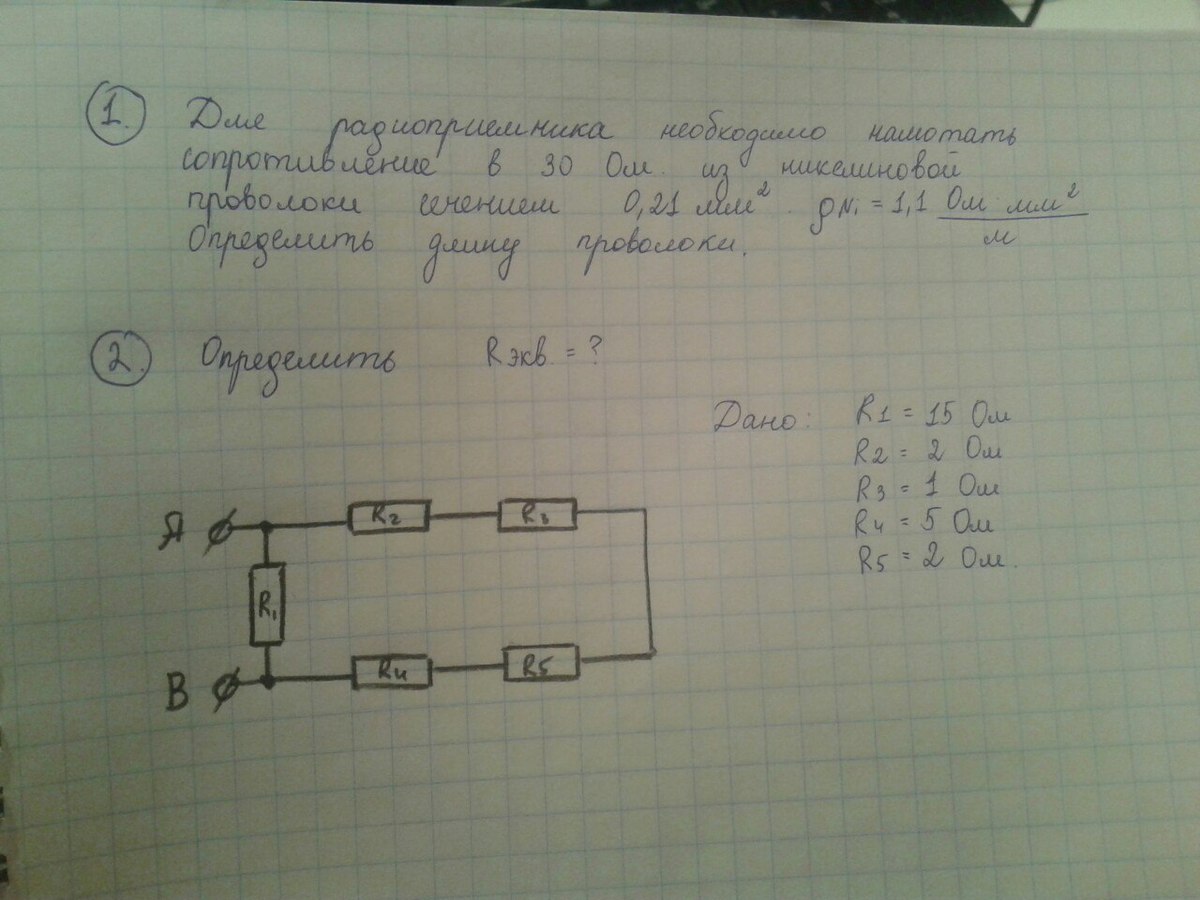 1. Для радиоприемника необходимо намотать
сопротивление в 30 Ом. из никелиновой
проволоки сечением 0,21 мм². ρNi = 1,1 Ом мм²/м
Определить длину проволоки.
2. Определить Rэкв. = ?
Дано: R1 = 15 Ом
R2 = 2 Ом
R3 = 1 Ом
R4 = 5 Ом
R5 = 2 Ом.
A R2 R3
R1
B R4 R5